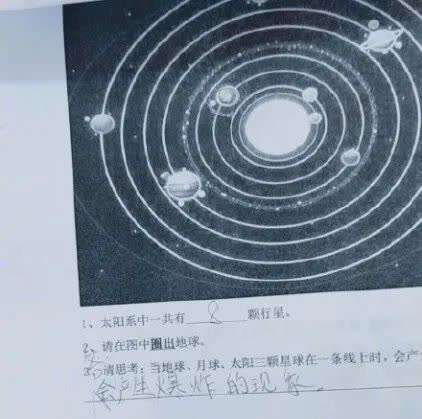 1、太阳系中一共有 8 颗行星。
2、请在图中圈出地球。
3、请思考:当地球、月球、太阳三颗星球在一条线上时,会产
会产生爆炸的现象。